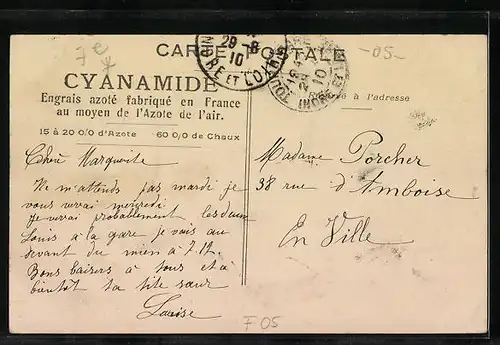 7e
CARTE POSTALE
-05-
29-8
10
INDRE ET LOIRE
10
INDRE ET LOIRE
CYANAMIDE
Engrais azoté fabriqué en France
au moyen de l'Azote de l'air.
é à l'adresse
15 à 20 0/0 d'Azote 60 0/0 de Chaux
Chère Marguerite
Ne m'attends pas mardi je
vous verrai mercredi
Je verrai probablement les deux
Louis à la gare je vais au
devant du mien à 7.12
Bons baisers à tous et à
bientôt ta tite sœur
Louise
Madame Porcher
38 rue d'Amboise
En Ville
F 05